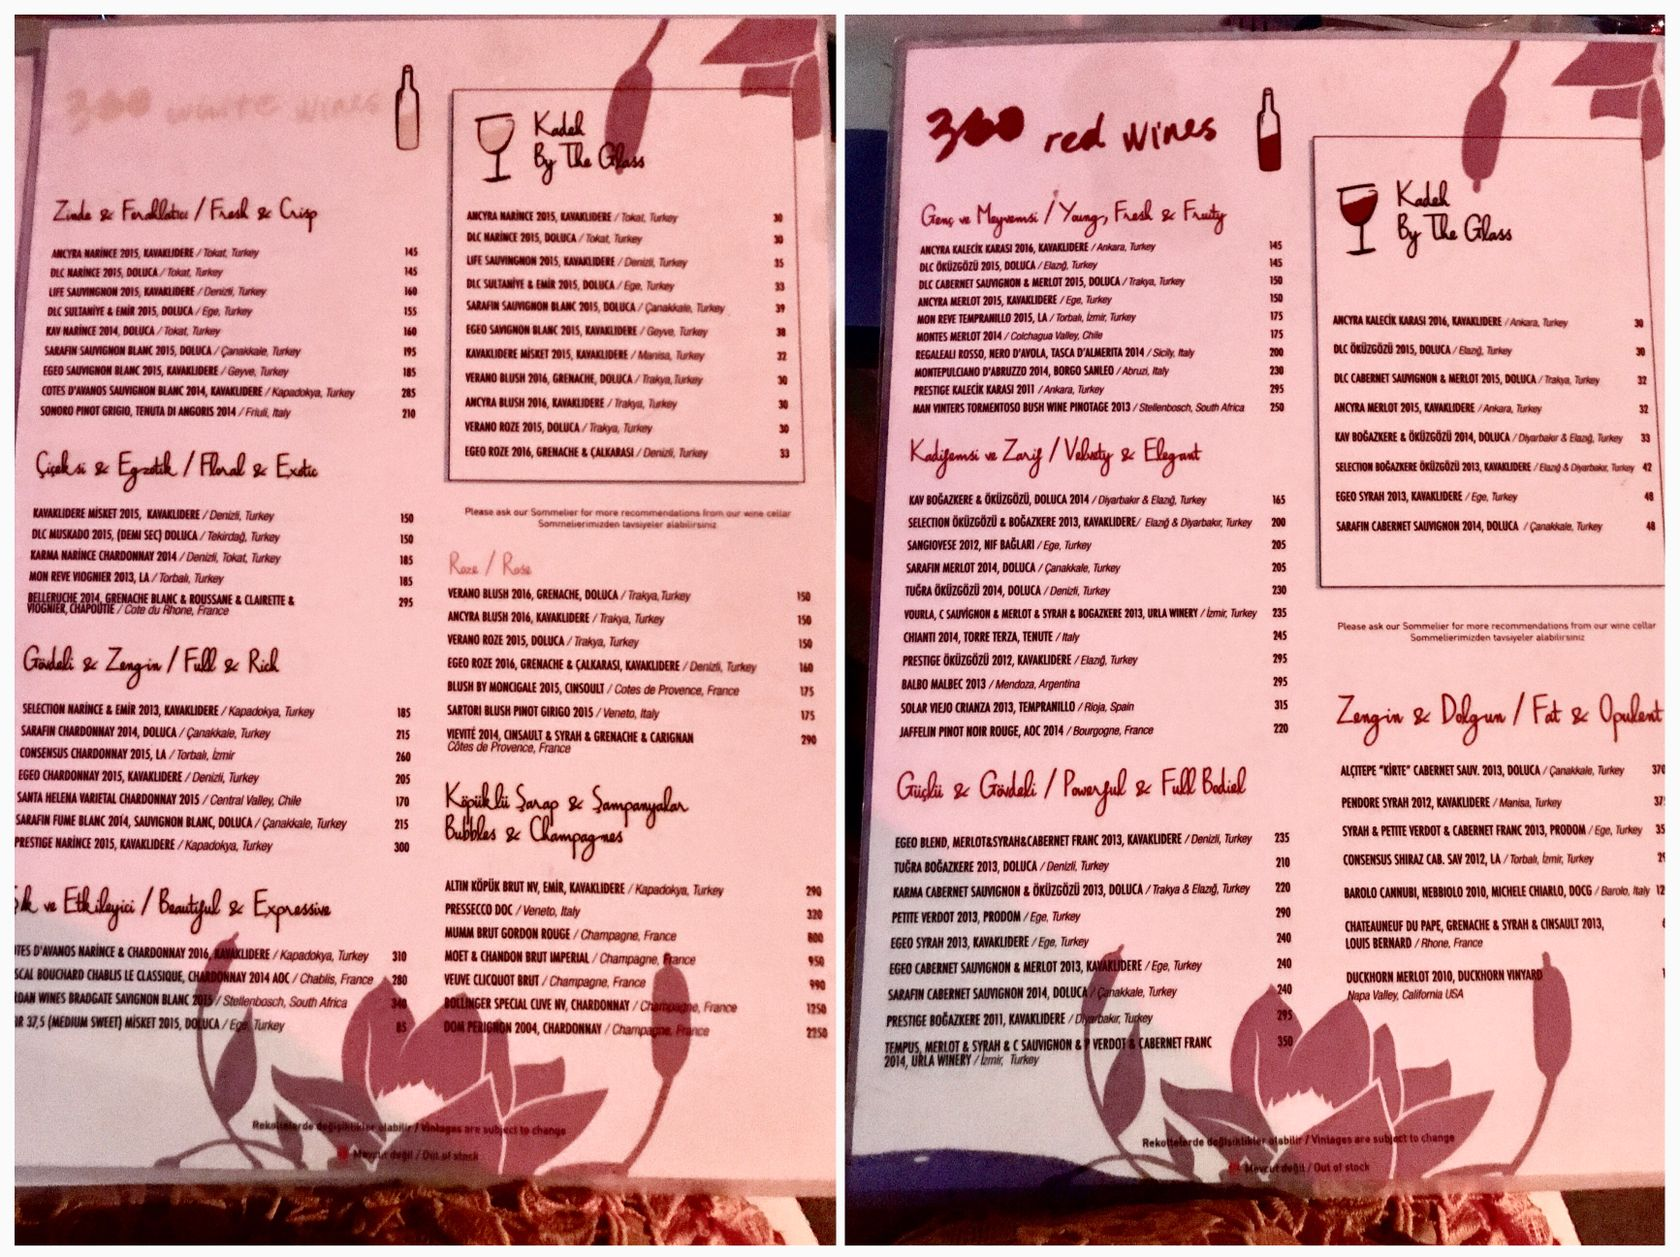 360 white wines
Zinde & Ferahlatıcı / Fresh & Crisp
ANCYRA NARİNCE 2015, KAVAKLIDERE / Tokat, Turkey 145
DLC NARİNCE 2015, DOLUCA / Tokat, Turkey 145
LIFE SAUVINGNON 2015, KAVAKLIDERE / Denizli, Turkey 160
DLC SULTANİYE & EMİR 2015, DOLUCA / Ege, Turkey 155
KAV NARİNCE 2014, DOLUCA / Tokat, Turkey 160
SARAFIN SAUVIGNON BLANC 2015, DOLUCA / Çanakkale, Turkey 195
EGEO SAUVIGNON BLANC 2015, KAVAKLIDERE / Geyve, Turkey 185
COTES D'AVANOS SAUVIGNON BLANC 2014, KAVAKLIDERE / Kapadokya, Turkey 285
SONORO PINOT GRIGIO, TENUTA DI ANGORIS 2014 / Friuli, Italy 210
Çiçeksi & Egzotik / Floral & Exotic
KAVAKLIDERE MİSKET 2015, KAVAKLIDERE / Denizli, Turkey 150
DLC MUSKADO 2015, (DEMI SEC) DOLUCA / Tekirdağ, Turkey 150
KARMA NARİNCE CHARDONNAY 2014 / Denizli, Tokat, Turkey 185
MON REVE VIOGNIER 2013, LA / Torbalı, Turkey 185
BELLERUCHE 2014, GRENACHE BLANC & ROUSSANE & CLAIRETTE &
VIOGNIER, CHAPOUTIE / Cote du Rhone, France 295
Gövdeli & Zengin / Full & Rich
SELECTION NARİNCE & EMİR 2013, KAVAKLIDERE / Kapadokya, Turkey 185
SARAFIN CHARDONNAY 2014, DOLUCA / Çanakkale, Turkey 215
CONSENSUS CHARDONNAY 2015, LA / Torbalı, İzmir 260
EGEO CHARDONNAY 2015, KAVAKLIDERE / Denizli, Turkey 205
SANTA HELENA VARIETAL CHARDONNAY 2015 / Central Valley, Chile 170
SARAFIN FUME BLANC 2014, SAUVIGNON BLANC, DOLUCA / Çanakkale, Turkey 215
PRESTIGE NARİNCE 2015, KAVAKLIDERE / Kapadokya, Turkey 300
ve Etkileyici / Beautiful & Expressive
D'AVANOS NARİNCE & CHARDONNAY 2016, KAVAKLIDERE / Kapadokya, Turkey 310
BOUCHARD CHABLIS LE CLASSIQUE, CHARDONNAY 2014 AOC / Chablis, France 280
WINES BRADGATE SAVIGNON BLANC 2015 / Stellenbosch, South Africa 340
37,5 (MEDIUM SWEET) MİSKET 2015, DOLUCA / Ege, Turkey 85
Kadeh
By The Glass
ANCYRA NARİNCE 2015, KAVAKLIDERE / Tokat, Turkey 30
DLC NARİNCE 2015, DOLUCA / Tokat, Turkey 30
LIFE SAUVINGNON 2015, KAVAKLIDERE / Denizli, Turkey 35
DLC SULTANİYE & EMİR 2015, DOLUCA / Ege, Turkey 33
SARAFIN SAUVIGNON BLANC 2015, DOLUCA / Çanakkale, Turkey 39
EGEO SAVIGNON BLANC 2015, KAVAKLIDERE / Geyve, Turkey 38
KAVAKLIDERE MİSKET 2015, KAVAKLIDERE / Manisa, Turkey 32
VERANO BLUSH 2016, GRENACHE, DOLUCA / Trakya, Turkey 30
ANCYRA BLUSH 2016, KAVAKLIDERE / Trakya, Turkey 30
VERANO ROZE 2015, DOLUCA / Trakya, Turkey 30
EGEO ROZE 2016, GRENACHE & ÇALKARASI / Denizli, Turkey 33
Please ask our Sommelier for more recommendations from our wine cellar
Sommelierimizden tavsiyeler alabilirsiniz
Roze / Rose
VERANO BLUSH 2016, GRENACHE, DOLUCA / Trakya, Turkey 150
ANCYRA BLUSH 2016, KAVAKLIDERE / Trakya, Turkey 150
VERANO ROZE 2015, DOLUCA / Trakya, Turkey 150
EGEO ROZE 2016, GRENACHE & ÇALKARASI, KAVAKLIDERE / Denizli, Turkey 160
BLUSH BY MONCIGALE 2015, CINSOULT / Cotes de Provence, France 175
SARTORI BLUSH PINOT GIRIGO 2015 / Veneto, Italy 175
VIEVITÉ 2014, CINSAULT & SYRAH & GRENACHE & CARIGNAN 290
Côtes de Provence, France
Köpüklü Şarap & Şampanyalar
Bubbles & Champagnes
ALTIN KÖPÜK BRUT NV, EMİR, KAVAKLIDERE / Kapadokya, Turkey 290
PRESSECCO DOC / Veneto, Italy 320
MUMM BRUT GORDON ROUGE / Champagne, France 800
MOET & CHANDON BRUT IMPERIAL / Champagne, France 950
VEUVE CLICQUOT BRUT / Champagne, France 990
BOLLINGER SPECIAL CUVE NV, CHARDONNAY / Champagne, France 1250
DOM PERIGNON 2004, CHARDONNAY / Champagne, France 2250
Rekoltelerde değişiklikler olabilir / Vintages are subject to change
Mevcut değil / Out of stock
360 red wines
Genç ve Meyvemsi / Young, Fresh & Fruity
ANCYRA KALECİK KARASI 2016, KAVAKLIDERE / Ankara, Turkey 145
DLC ÖKÜZGÖZÜ 2015, DOLUCA / Elazığ, Turkey 145
DLC CABERNET SAUVIGNON & MERLOT 2015, DOLUCA / Trakya, Turkey 150
ANCYRA MERLOT 2015, KAVAKLIDERE / Ege, Turkey 150
MON REVE TEMPRANILLO 2015, LA / Torbalı, İzmir, Turkey 175
MONTES MERLOT 2014 / Colchagua Valley, Chile 175
REGALEALI ROSSO, NERO D'AVOLA, TASCA D'ALMERITA 2014 / Sicily, Italy 200
MONTEPULCIANO D'ABRUZZO 2014, BORGO SANLEO / Abruzi, Italy 230
PRESTIGE KALECİK KARASI 2011 / Ankara, Turkey 295
MAN VINTERS TORMENTOSO BUSH WINE PINOTAGE 2013 / Stellenbosch, South Africa 250
Kadifemsi ve Zarif / Velvety & Elegant
KAV BOĞAZKERE & ÖKÜZGÖZÜ, DOLUCA 2014 / Diyarbakır & Elazığ, Turkey 165
SELECTION ÖKÜZGÖZÜ & BOĞAZKERE 2013, KAVAKLIDERE/ Elazığ & Diyarbakır, Turkey 200
SANGIOVESE 2012, NIF BAĞLARI / Ege, Turkey 205
SARAFIN MERLOT 2014, DOLUCA / Çanakkale, Turkey 205
TUĞRA ÖKÜZGÖZÜ 2014, DOLUCA / Denizli, Turkey 230
VOURLA, C SAUVİGNON & MERLOT & SYRAH & BOGAZKERE 2013, URLA WINERY / İzmir, Turkey 235
CHIANTI 2014, TORRE TERZA, TENUTE / Italy 245
PRESTIGE ÖKÜZGÖZÜ 2012, KAVAKLIDERE / Elazığ, Turkey 295
BALBO MALBEC 2013 / Mendoza, Argentina 295
SOLAR VIEJO CRIANZA 2013, TEMPRANILLO / Rioja, Spain 315
JAFFELIN PINOT NOIR ROUGE, AOC 2014 / Bourgogne, France 220
Güçlü & Gövdeli / Powerful & Full Bodied
EGEO BLEND, MERLOT&SYRAH&CABERNET FRANC 2013, KAVAKLIDERE / Denizli, Turkey 235
TUĞRA BOĞAZKERE 2013, DOLUCA / Denizli, Turkey 210
KARMA CABERNET SAUVIGNON & ÖKÜZGÖZÜ 2013, DOLUCA / Trakya & Elazığ, Turkey 220
PETITE VERDOT 2013, PRODOM / Ege, Turkey 290
EGEO SYRAH 2013, KAVAKLIDERE / Ege, Turkey 240
EGEO CABERNET SAUVIGNON & MERLOT 2013, KAVAKLIDERE / Ege, Turkey 240
SARAFIN CABERNET SAUVIGNON 2014, DOLUCA / Çanakkale, Turkey 240
PRESTIGE BOĞAZKERE 2011, KAVAKLIDERE / Diyarbakır, Turkey 295
TEMPUS, MERLOT & SYRAH & C SAUVIGNON & P VERDOT & CABERNET FRANC 350
2014, URLA WINERY / İzmir, Turkey
Kadeh
By The Glass
ANCYRA KALECİK KARASI 2016, KAVAKLIDERE / Ankara, Turkey 30
DLC ÖKÜZGÖZÜ 2015, DOLUCA / Elazığ, Turkey 30
DLC CABERNET SAUVIGNON & MERLOT 2015, DOLUCA / Trakya, Turkey 32
ANCYRA MERLOT 2015, KAVAKLIDERE / Ankara, Turkey 32
KAV BOĞAZKERE & ÖKÜZGÖZÜ 2014, DOLUCA / Diyarbakır & Elazığ, Turkey 33
SELECTION BOĞAZKERE ÖKÜZGÖZÜ 2013, KAVAKLIDERE / Elazığ & Diyarbakır, Turkey 42
EGEO SYRAH 2013, KAVAKLIDERE / Ege, Turkey 48
SARAFIN CABERNET SAUVIGNON 2014, DOLUCA / Çanakkale, Turkey 48
Please ask our Sommelier for more recommendations from our wine cellar
Sommelierimizden tavsiyeler alabilirsiniz
Zengin & Dolgun / Fat & Opulent
ALÇITEPE "KİRTE" CABERNET SAUV. 2013, DOLUCA / Çanakkale, Turkey 370
PENDORE SYRAH 2012, KAVAKLIDERE / Manisa, Turkey
SYRAH & PETITE VERDOT & CABERNET FRANC 2013, PRODOM / Ege, Turkey
CONSENSUS SHIRAZ CAB. SAV 2012, LA / Torbalı, İzmir, Turkey
BAROLO CANNUBI, NEBBIOLO 2010, MICHELE CHIARLO, DOCG / Barolo, Italy
CHATEAUNEUF DU PAPE, GRENACHE & SYRAH & CINSAULT 2013,
LOUIS BERNARD / Rhone, France
DUCKHORN MERLOT 2010, DUCKHORN VINYARD
Napa Valley, California USA
Rekoltelerde değişiklikler olabilir / Vintages are subject to change
Mevcut değil / Out of stock